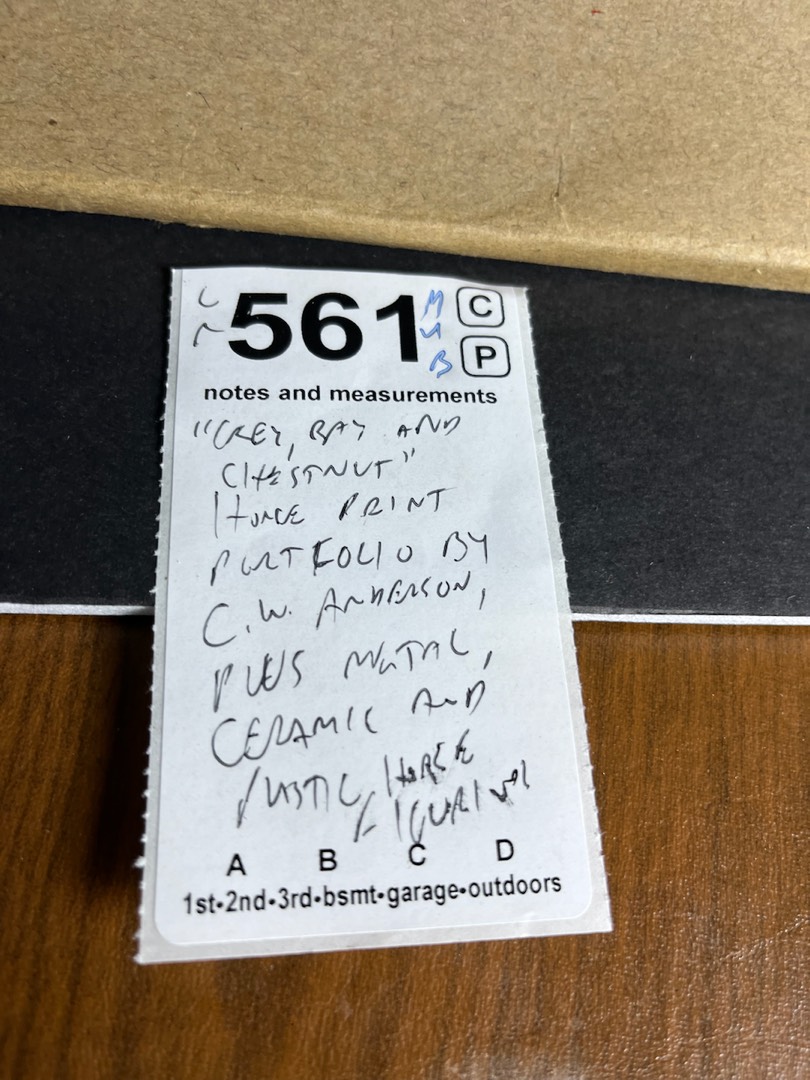 L
r
561
M
U
B
C
P
notes and measurements
"GREY, BAY AND
CHESTNUT"
HORSE PRINT
PORTFOLIO BY
C.W. ANDERSON,
PLUS METAL,
CERAMIC AND
PLASTIC HORSE
FIGURINES
A B C D
1st•2nd•3rd•bsmt•garage•outdoors